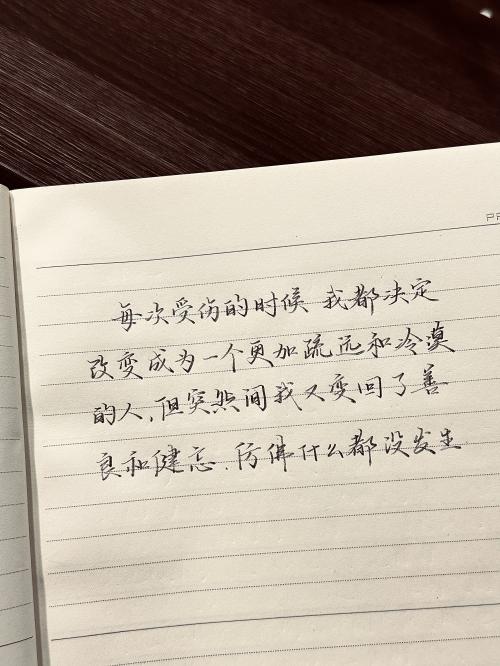 每次受伤的时候 我都决定
改变成为一个更加疏远和冷漠
的人,但突然间我又变回了善
良和健忘.仿佛什么都没发生